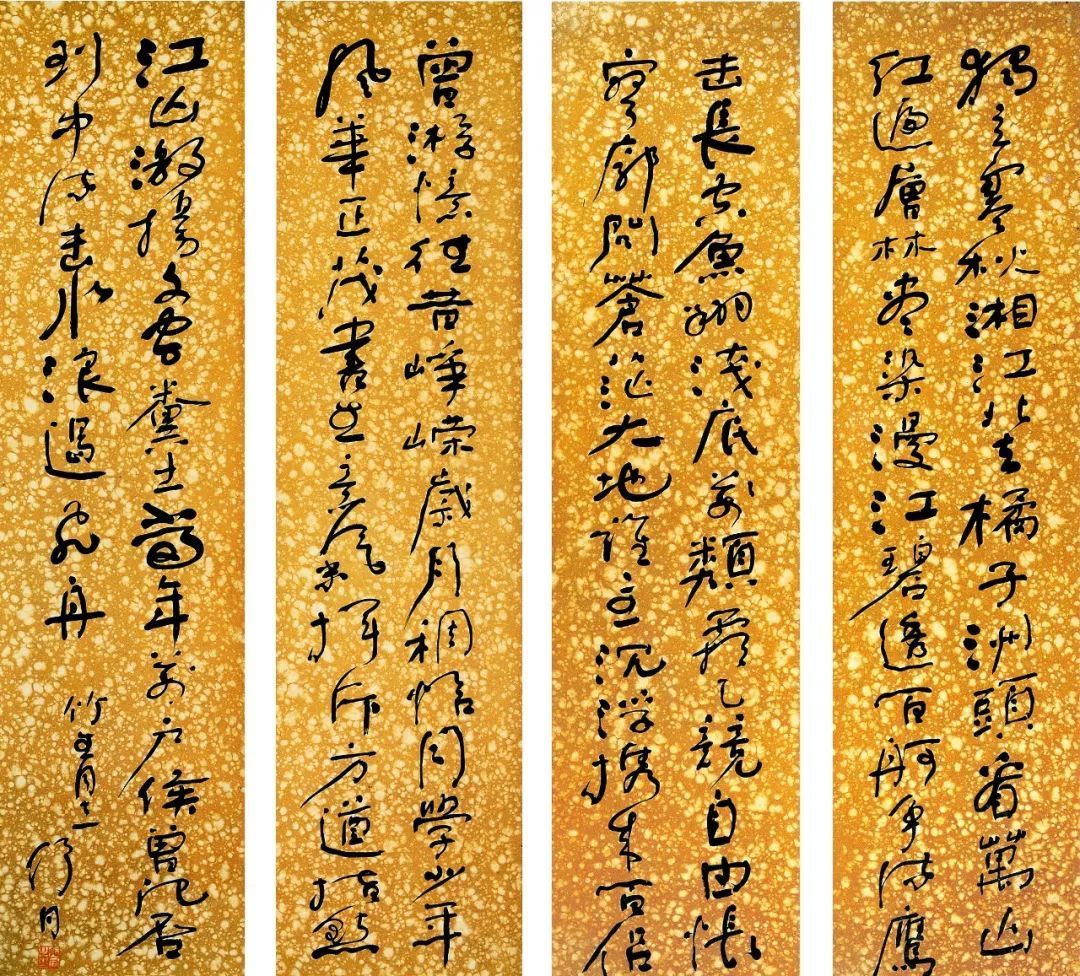 獨立寒秋湘江北去橘子洲頭看萬山
紅遍層林盡染漫江碧透百舸爭流鷹
击長空魚翔淺底萬類霜天競自由悵
寥廓問蒼茫大地誰主沉浮攜来百侣
曾游憶往昔崢嶸歲月稠恰同學少年
風華正茂書生意氣揮斥方遒指點
江山激揚文字糞土當年萬户侯曾記否
到中流击水浪遏飛舟